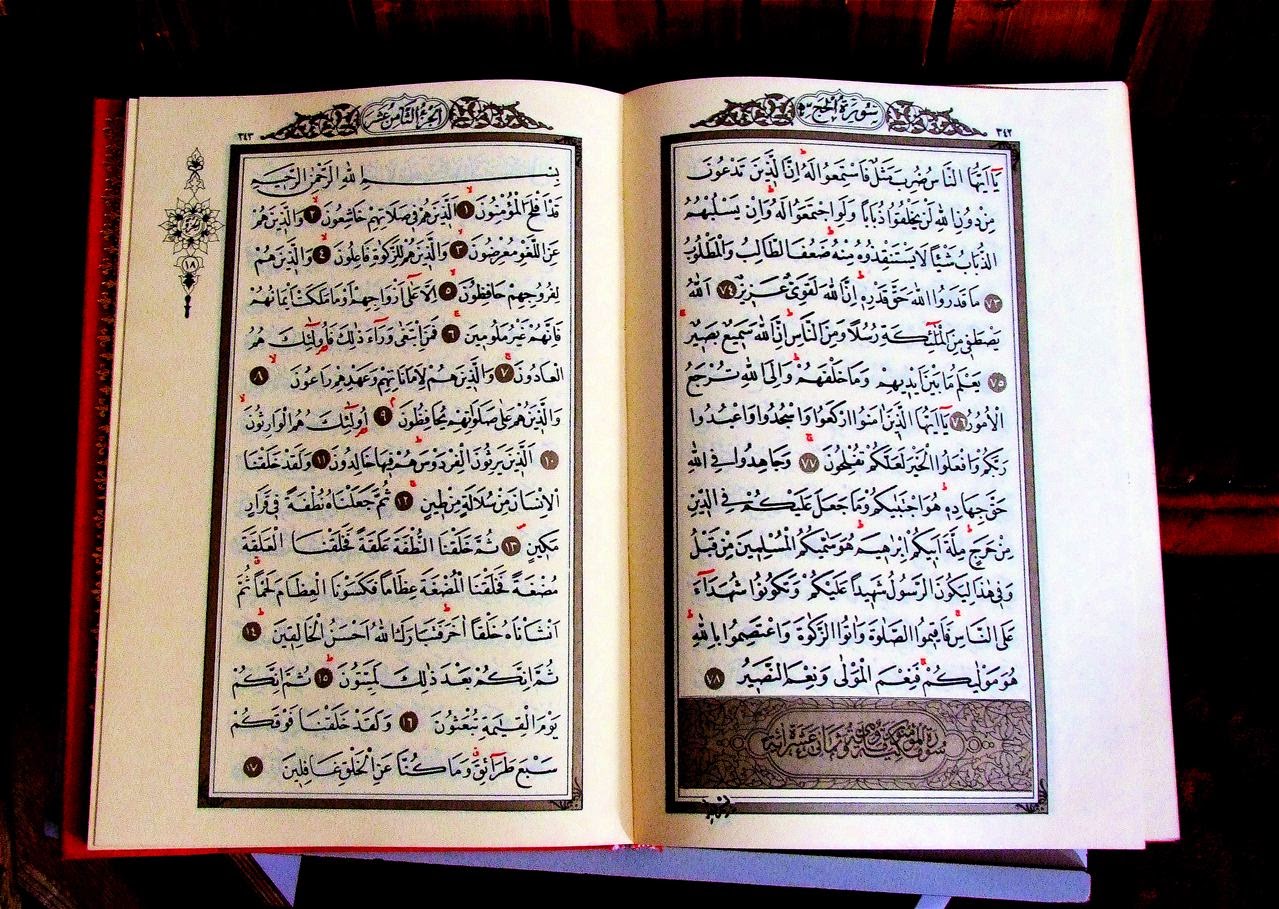 سُورَةُ الْحَجِّ
٣٤٢
يَا اَيُّهَا النَّاسُ ضُرِبَ مَثَلٌ فَاسْتَمِعُوا لَهُ اِنَّ الَّذِينَ تَدْعُونَ
مِنْ دُونِ اللّٰهِ لَنْ يَخْلُقُوا ذُبَابًا وَلَوِ اجْتَمَعُوا لَهُ وَاِنْ يَسْلُبْهُمُ
الذُّبَابُ شَيْئًا لَا يَسْتَنْقِذُوهُ مِنْهُ ضَعُفَ الطَّالِبُ وَالْمَطْلُوبُ
٧٣ مَا قَدَرُوا اللّٰهَ حَقَّ قَدْرِهِ اِنَّ اللّٰهَ لَقَوِىٌّ عَزِيزٌ ٧٤ اَللّٰهُ
يَصْطَفِى مِنَ الْمَلٰٓئِكَةِ رُسُلًا وَمِنَ النَّاسِ اِنَّ اللّٰهَ سَمِيعٌ بَصِيرٌ
٧٥ يَعْلَمُ مَا بَيْنَ اَيْدِيهِمْ وَمَا خَلْفَهُمْ وَاِلَى اللّٰهِ تُرْجَعُ
الْاُمُورُ ٧٦ يَا اَيُّهَا الَّذِينَ اٰمَنُوا ارْكَعُوا وَاسْجُدُوا وَاعْبُدُوا
رَبَّكُمْ وَافْعَلُوا الْخَيْرَ لَعَلَّكُمْ تُفْلِحُونَ ٧٧ وَجَاهِدُوا فِى اللّٰهِ
حَقَّ جِهَادِهِ هُوَ اجْتَبٰيكُمْ وَمَا جَعَلَ عَلَيْكُمْ فِى الدِّينِ
مِنْ حَرَجٍ مِلَّةَ اَبِيكُمْ اِبْرٰهِيمَ هُوَ سَمّٰيكُمُ الْمُسْلِمِينَ مِنْ قَبْلُ
وَفِى هٰذَا لِيَكُونَ الرَّسُولُ شَهِيدًا عَلَيْكُمْ وَتَكُونُوا شُهَدَٓاءَ
عَلَى النَّاسِ فَاَقِيمُوا الصَّلٰوةَ وَاٰتُوا الزَّكٰوةَ وَاعْتَصِمُوا بِاللّٰهِ
هُوَ مَوْلٰيكُمْ فَنِعْمَ الْمَوْلٰى وَنِعْمَ النَّصِيرُ ٧٨
اَلْجُزْءُ الثَّامِنُ عَشَرَ
٣٤٣
بِسْمِ اللّٰهِ الرَّحْمٰنِ الرَّحِيمِ
قَدْ اَفْلَحَ الْمُؤْمِنُونَ ١ اَلَّذِينَ هُمْ فِى صَلَاتِهِمْ خَاشِعُونَ ٢ وَالَّذِينَ هُمْ
عَنِ اللَّغْوِ مُعْرِضُونَ ٣ وَالَّذِينَ هُمْ لِلزَّكٰوةِ فَاعِلُونَ ٤ وَالَّذِينَ هُمْ
لِفُرُوجِهِمْ حَافِظُونَ ٥ اِلَّا عَلٰٓى اَزْوَاجِهِمْ اَوْ مَا مَلَكَتْ اَيْمَانُهُمْ
فَاِنَّهُمْ غَيْرُ مَلُومِينَ ٦ فَمَنِ ابْتَغٰى وَرَٓاءَ ذٰلِكَ فَاُولٰٓئِكَ هُمُ
الْعَادُونَ ٧ وَالَّذِينَ هُمْ لِاَمَانَاتِهِمْ وَعَهْدِهِمْ رَاعُونَ ٨
وَالَّذِينَ هُمْ عَلٰى صَلَوَاتِهِمْ يُحَافِظُونَ ٩ اُولٰٓئِكَ هُمُ الْوَارِثُونَ
١٠ اَلَّذِينَ يَرِثُونَ الْفِرْدَوْسَ هُمْ فِيهَا خَالِدُونَ ١١ وَلَقَدْ خَلَقْنَا
الْاِنْسَانَ مِنْ سُلَالَةٍ مِنْ طِينٍ ١٢ ثُمَّ جَعَلْنَاهُ نُطْفَةً فِى قَرَارٍ
مَكِينٍ ١٣ ثُمَّ خَلَقْنَا النُّطْفَةَ عَلَقَةً فَخَلَقْنَا الْعَلَقَةَ
مُضْغَةً فَخَلَقْنَا الْمُضْغَةَ عِظَامًا فَكَسَوْنَا الْعِظَامَ لَحْمًا ثُمَّ
اَنْشَاْنَاهُ خَلْقًا اٰخَرَ فَتَبَارَكَ اللّٰهُ اَحْسَنُ الْخَالِقِينَ ١٤
ثُمَّ اِنَّكُمْ بَعْدَ ذٰلِكَ لَمَيِّتُونَ ١٥ ثُمَّ اِنَّكُمْ
يَوْمَ الْقِيٰمَةِ تُبْعَثُونَ ١٦ وَلَقَدْ خَلَقْنَا فَوْقَكُمْ
سَبْعَ طَرَٓائِقَ وَمَا كُنَّا عَنِ الْخَلْقِ غَافِلِينَ ١٧
١٨